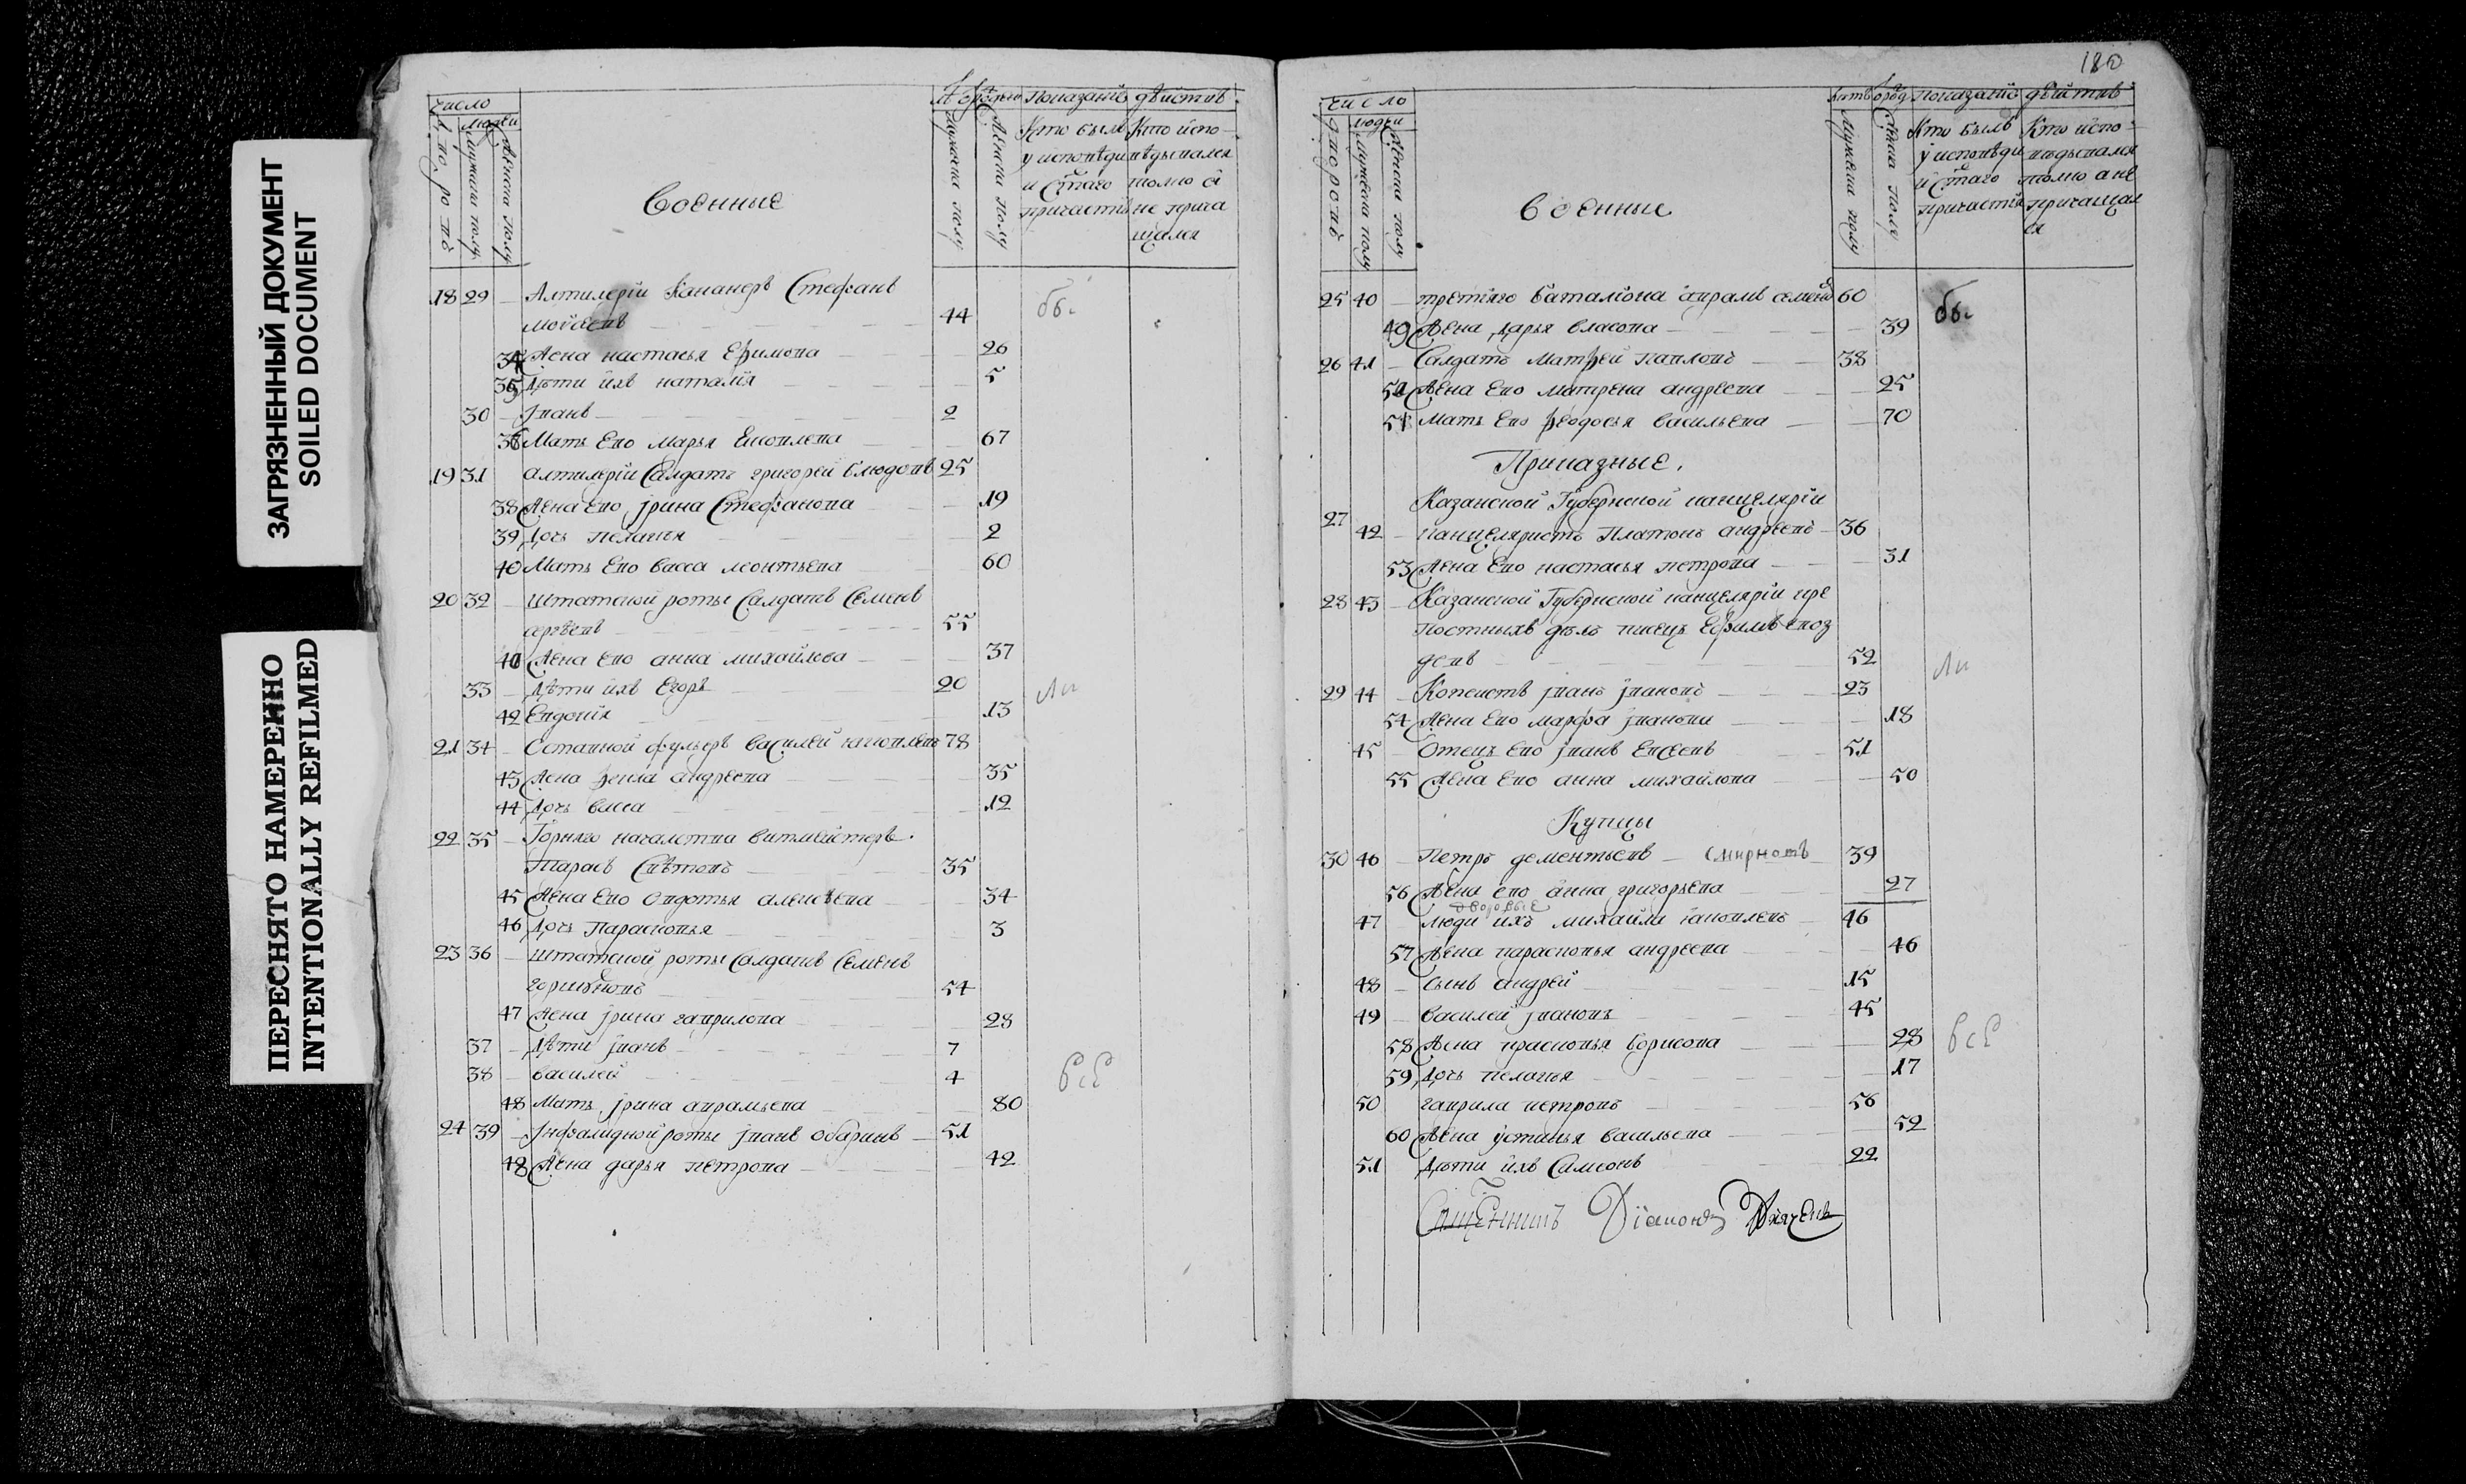 ЗАГРЯЗНЕННЫЙ ДОКУМЕНТ
SOILED DOCUMENT
ПЕРЕСНЯТО НАМЕРЕННО
INTENTIONALLY REFILMED
число
людей
дворовъ
мужска полу
женска полу
Военные
мужеска полу
женска полу
Показаніе действъ
Кто былъ у исповѣди и стаго причастия
Кто испо
вѣдывался
толко а
не прича
щался
18 29 - Алтилеріи Кананеръ Стефанъ
Мойсеевъ 44 бы
34 Жена настасья Ефимова 26
35 Дѣти ихъ наталія 5
30 - Іванъ 2
36 Мать Ево Марья Яковлева 67
19 31 Алтилеріи Салдатъ григореи блюдовъ 25
38 Жена Ево Ірина Стефанова 19
39 Дочь пелагея 2
40 Мать Ево васса леонтьева 60
20 32 - Штатской роты Салдатъ Семенъ
сергѣевъ 55
40 Жена Ево анна михайлова 37
33 - Дѣти ихъ Егоръ 20 ли
42 Евдокия 13
21 34 - Отставной фурьеръ василей яковлевъ 78
43 Жена фекла андреева 35
44 Дочь васса 12
22 35 - Горнаго началства
Тарасъ Свѣтовъ 35
45 Жена Ево Овдотья алексѣева 34
46 Дочь Парасковья 3
23 36 - Штатской роты Салдатъ Семенъ
горшуновъ 54
47 Жена Ірина гаврилова 28
37 - Дѣти Іванъ 7
38 - василей 4 всѣ
48 Мать Ірина аврамьева 80
24 39 - Інфалидной роты Іванъ Обаринъ 51
48 Жена дарья петрова 42
180
число
людей
дворовъ
мужеска полу
женска полу
военные
мужеска полу
женска полу
показаніе дѣйствъ
Кто былъ
у исповѣди
и стаго
причастия
Кто испо
вѣдывался
толко а не
причащал
ся
25 40 - третьяго баталіона аврамъ семеновъ 60 бы
49 Жена дарья власова 39
26 41 - Салдатъ Матфей павловъ 38
50 Жена Ево матрена андреева 25
51 Мать Ево феодосья васильева 70
Приказные.
Казанской Губернской канцеляріи
27 42 - канцеляристъ Платонъ андреевъ 36
53 Жена Ево настасья петрова 31
28 43 - Казанской Губернской канцеляріи кре
постныхъ дѣлъ писецъ Ефимъ
девъ 52 ли
29 44 - Копеистъ Іванъ Івановъ 23
54 Жена Ево марфа Іванова 18
45 - Отецъ Ево Іванъ Евсеевъ 51
55 Жена Ево анна михайлова 50
Купцы
30 46 - Петръ дементьевъ - смирновъ 39
56 Жена ево анна григорьева 27
дворовые
47 Люди ихъ михайла яковлевъ 46
57 Жена парасковья андреева 46
48 - сынъ андрей 15
49 - василей Івановъ 45
58 Жена прасковья борисова 28 всѣ
59 Дочь пелагея 17
50 гаврила петровъ 56
60 Жена устинья васильева 52
51 Дѣти ихъ Самсонъ 22
Священникъ